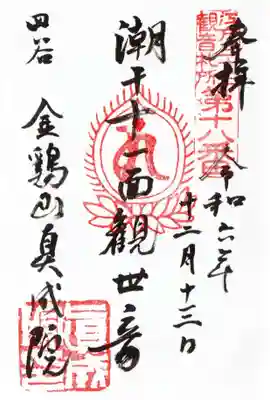 江戸三十三
観音札所
第十八番
奉拝
令和六年
十二月十三日
潮干十一面観世音
四谷 金鶏山真成院